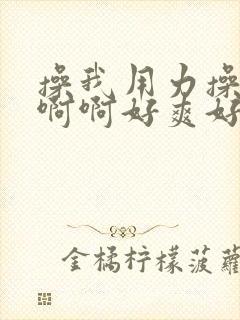 操我用力操
啊啊好爽好
金橘柠檬菠萝